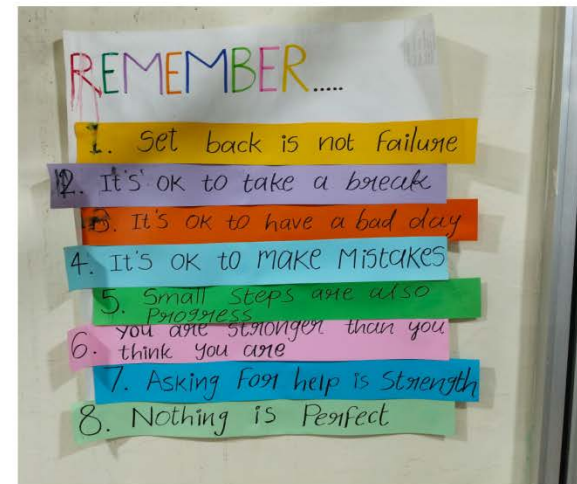 REMEMBER.....
1. Set back is not Failure
2. It's ok to take a break
3. It's OK to have a bad day
4. It's OK to make Mistakes
5. Small Steps are also
Progress
6. You are stronger than you
think you are
7. Asking For help is Strength
8. Nothing is Perfect